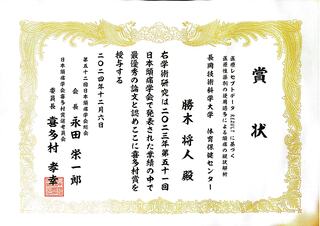 賞状
医療レセプトデータ REZULTに基づく
医療保険制の使用過多による頭痛の現状解析
長岡技術科学大学 体育保健センター
勝木 将人 殿
右学術研究は二〇二三年第五十一回
日本頭痛学会で発表された業績の中で
最優秀の論文と認めここに喜多村賞を
授与する
二〇二四年十二月六日
第五十二回日本頭痛学会総会
会長 永田 栄一郎
日本頭痛学会喜多村賞選考委員会
委員長 喜多村 孝幸